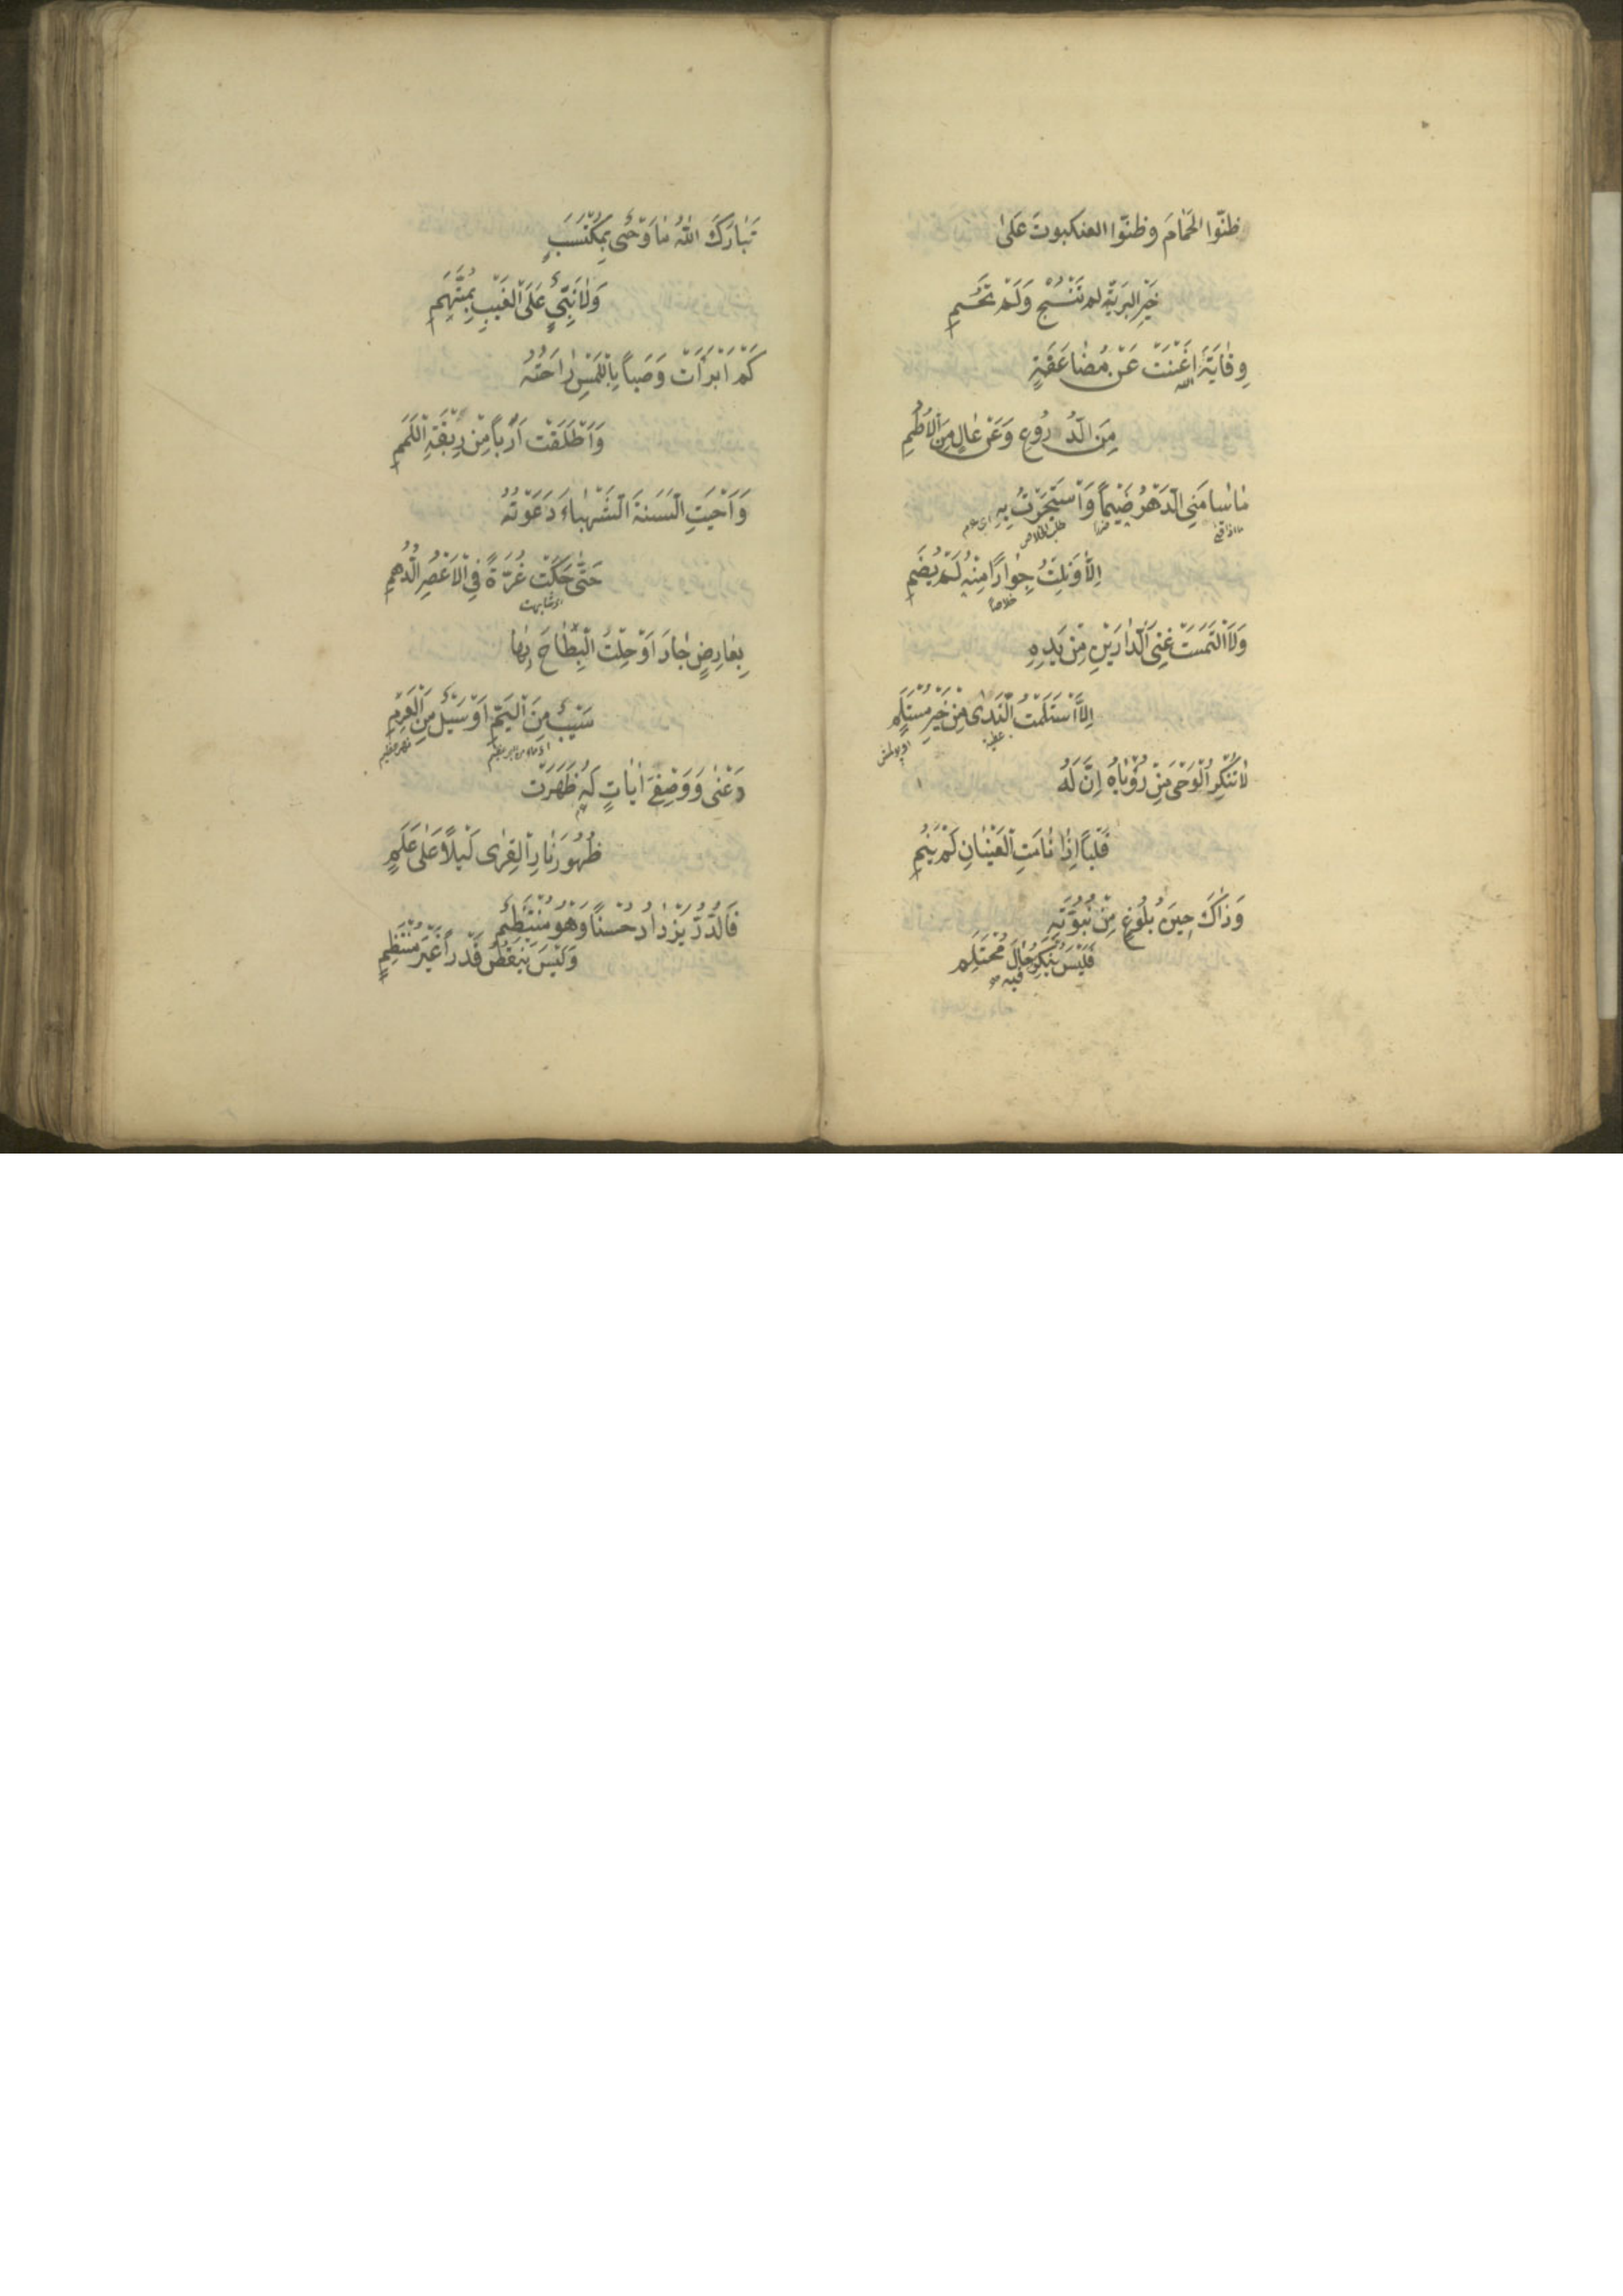 ظَنُّوا الْحَمَامَ وَظَنُّوا العنكبوتَ عَلىٰ
خَيْرِ البَرِيَّةِ لم تَنْسُجْ وَلَمْ تَحُمِ
وِقَايَةُ اللهِ اَغْنَتْ عَنْ مُضَاعَفَةٍ
مِنَ الدُّرُوعِ وَعَنْ عَالٍ مِنَ الْاُطُمِ
مَا سَامَنِي الدَّهْرُ ضَيْماً وَاسْتَجَرْتُ بِهِ
ضررا طلب الخلاص
اِلَّا وَنِلْتُ جِوَارًا مِنْهُ لَمْ يُضَمِ
خلاصا
وَلَا الْتَمَسْتُ غِنَى الدَّارَيْنِ مِنْ يَدِهِ
اِلَّا اسْتَلَمْتُ النَّدَى مِنْ خَيْرِ مُسْتَلَمِ
عطية
لَا تُنْكِرِ الْوَحْىَ مِنْ رُؤْيَاهُ اِنَّ لَهُ
قَلْبًا اِذَا نَامَتِ الْعَيْنَانِ لَمْ يَنَمِ
وَذَاكَ حِينَ بُلُوغٍ مِنْ نُبُوَّتِهِ
فَلَيْسَ يُنْكَرُ حَالُ مُحْتَلِمِ
فيه صح
تَبَارَكَ اللهُ مَا وَحْىٌ بِمُكْتَسَبٍ
وَلَا نَبِيٌّ عَلَى الْغَيْبِ بِمُتَّهَمِ
كَمْ اَبْرَأَتْ وَصَباً بِاللَّمْسِ رَاحَتُهُ
وَاَطْلَقَتْ اَرِباً مِنْ رِبْقَةِ اللَّمَمِ
وَاَحْيَتِ السَّنَةَ الشَّهْبَاءَ دَعْوَتُهُ
حَتَّى حَكَتْ غُرَّةً فِي الْاَعْصُرِ الدُّهُمِ
اى شابهت
بِعَارِضٍ جَادَ اَوْ خِلْتَ الْبِطَاحَ بِهَا
سَيْبٌ مِنَ الْيَمِّ اَوْ سَيْلٌ مِنَ الْعَرِمِ
دَعْنِى وَوَصْفِىَ اٰيَاتٍ لَهُ ظَهَرَتْ
ظُهُورَ نَارِ الْقِرَى لَيْلًا عَلَى عَلَمٍ
فَالدُّرُّ يَزْدَادُ حُسْنًا وَهُوَ مُنْتَظِمٌ
وَلَيْسَ يَنْقُصُ قَدْراً غَيْرَ مُنْتَظِمٍ